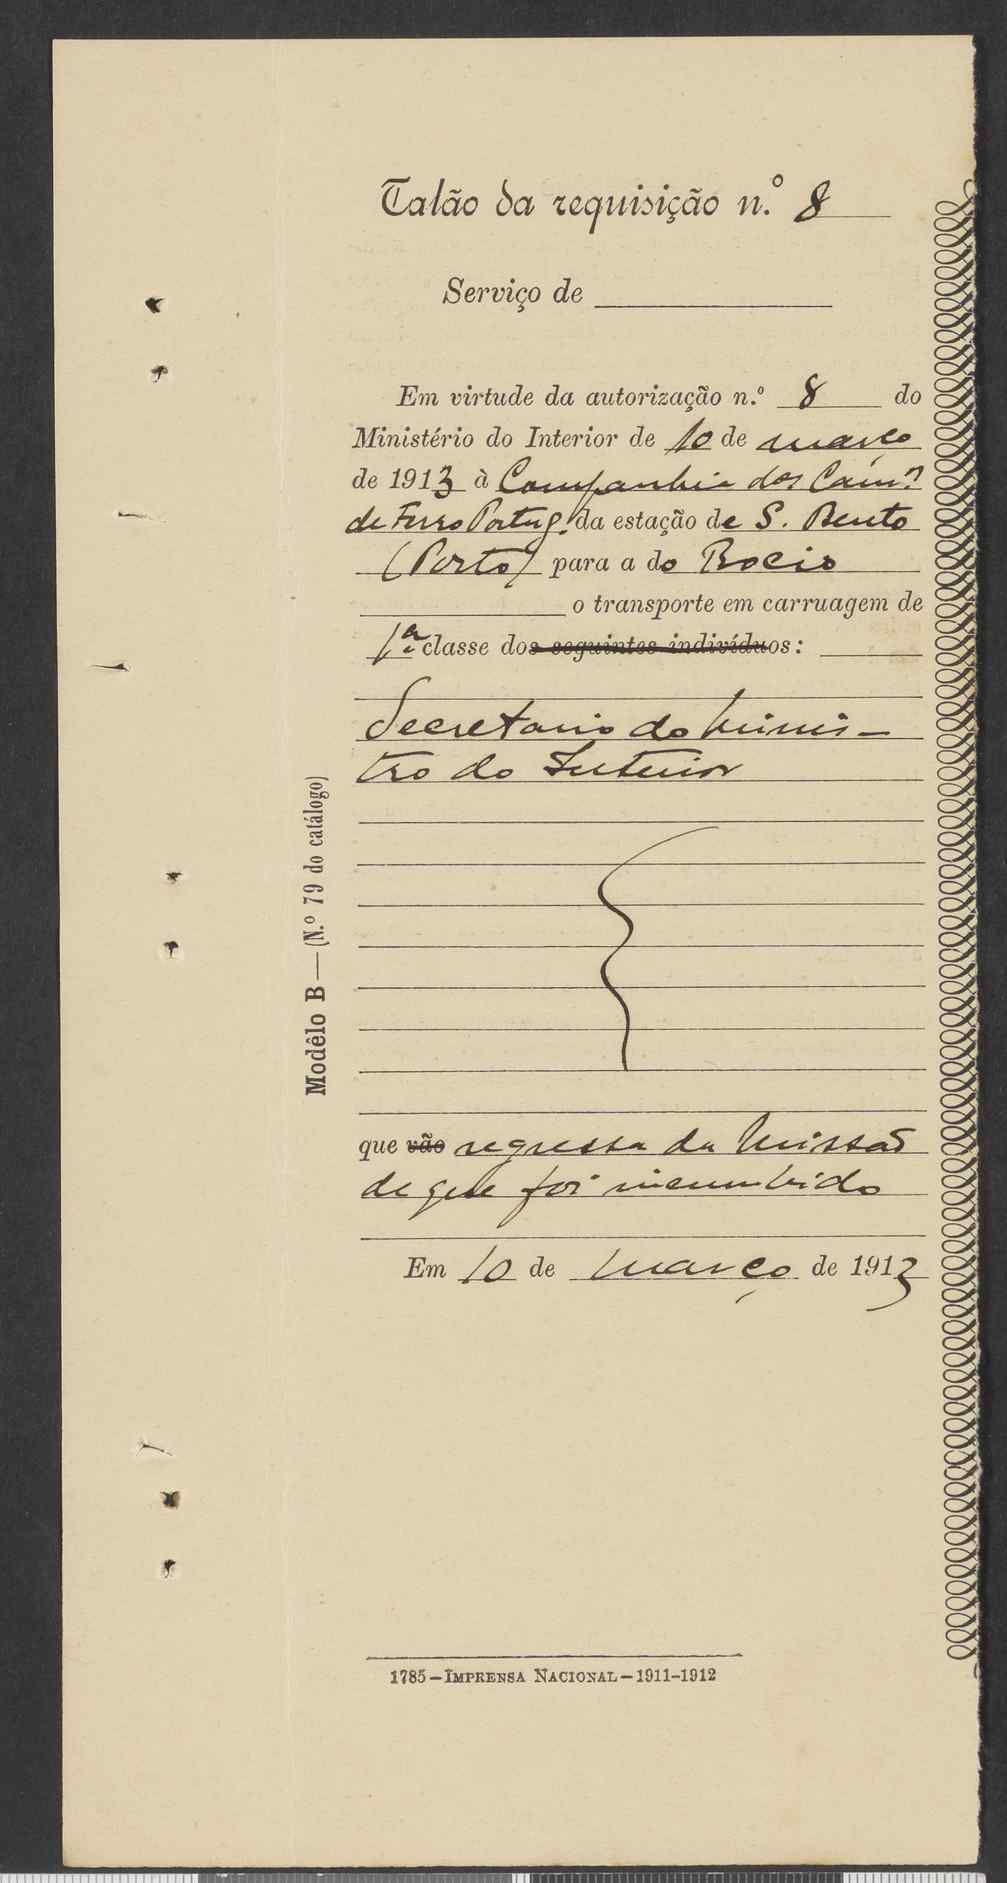 Talão da requisição n.º 8
Serviço de
Em virtude da autorização n.º 8 do
Ministério do Interior de 10 de março
de 1913 à Companhia dos Cam.os
de Ferro Portug. da estação de S. Bento
(Porto) para a do Rocio
o transporte em carruagem de
1.ª classe dos seguintes indivíduos:
Secretario do Minis-
tro do Interior
que vão regressa da Missão
de que foi incumbido
Em 10 de março de 1913
Modêlo B—(N.º 79 do catálogo)
1785—IMPRENSA NACIONAL—1911-1912